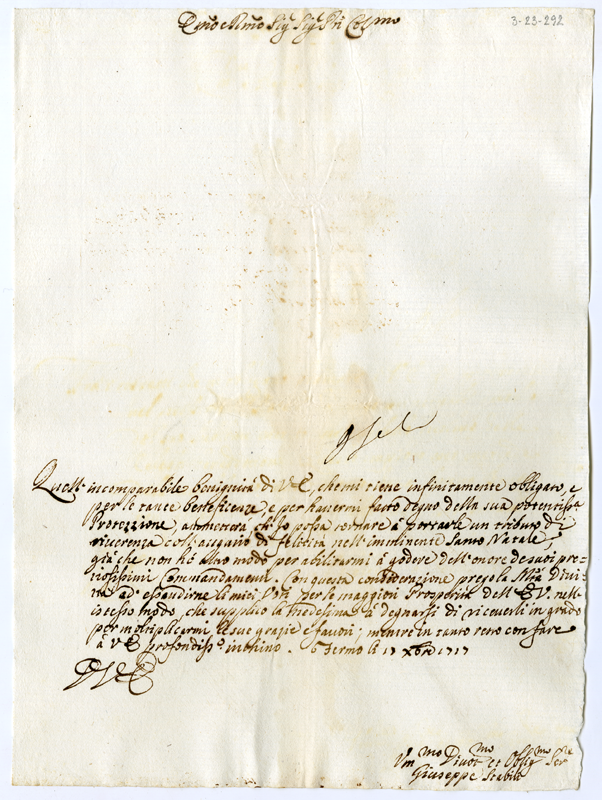 3-23-292
Emo e Rmo Sigr Sigr Pn Cosmo
Quell' incomparabile benignità di V E, che mi tiene infinitamente obligato, e
per le tante beneficenze, e per havermi fatto degno della sua potentissa
Protezzione, ametterà, ch' io possa restare à portarle un tributo di
riverenza coll' augurio di felicità nell' imminente Santo Natale,
già che non hò altro modo per abilitarmi à godere dell' onore de suoi pre=
tiosissimi Commandamenti. Con questa consideratione prego la Mtà Divi=
na ad' essaudirne li miei Voti per le maggiori Prosperità dell' E V. nell'
istesso modo, che supplico la medesima à degnarsi di riceverli in grado
per moltiplicarmi le sue grazie e favori; mentre in tanto resto con fare
à V E profondisso inchino. Fermo li 17 Xbre 1717
D V E
Vmmo Divotmo et Obligmo Sre
Giuseppe Stabili